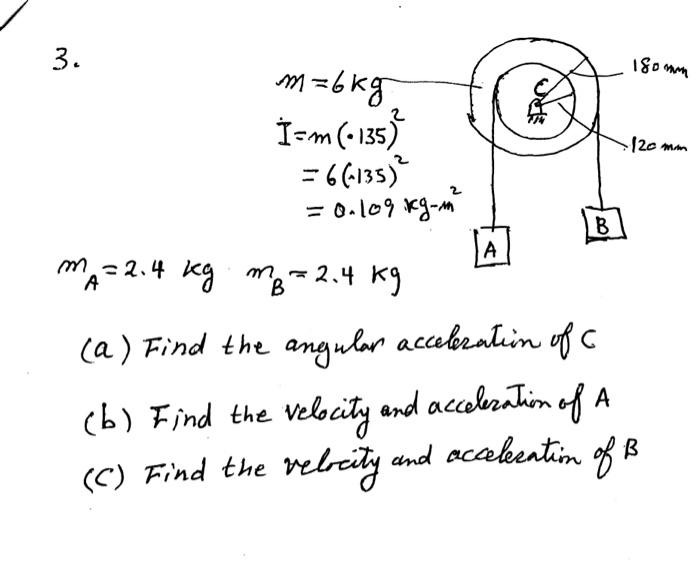 3.
180 mm
m = 6 kg
C
I = m (.135)²
120 mm
= 6(.135)²
= 0.109 kg-m²
B
A
m_A = 2.4 kg m_B = 2.4 kg
(a) Find the angular acceleration of C
(b) Find the velocity and acceleration of A
(C) Find the velocity and acceleration of B